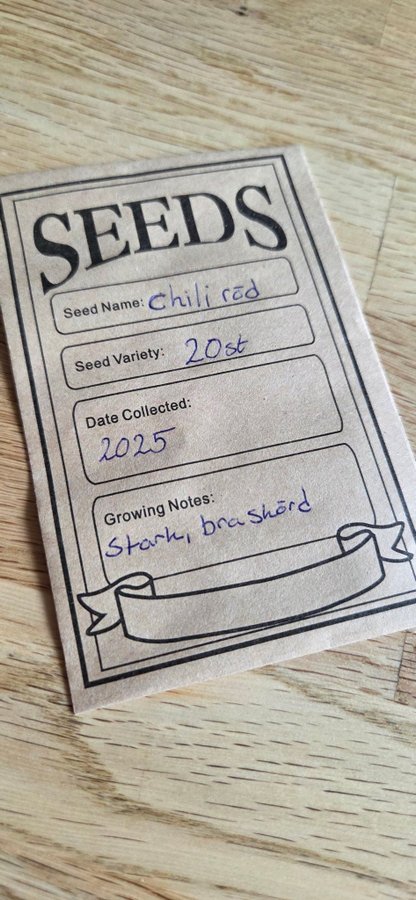 SEEDS
Seed Name: Chili röd
Seed Variety: 20st
Date Collected:
2025
Growing Notes:
Stark, bra skörd